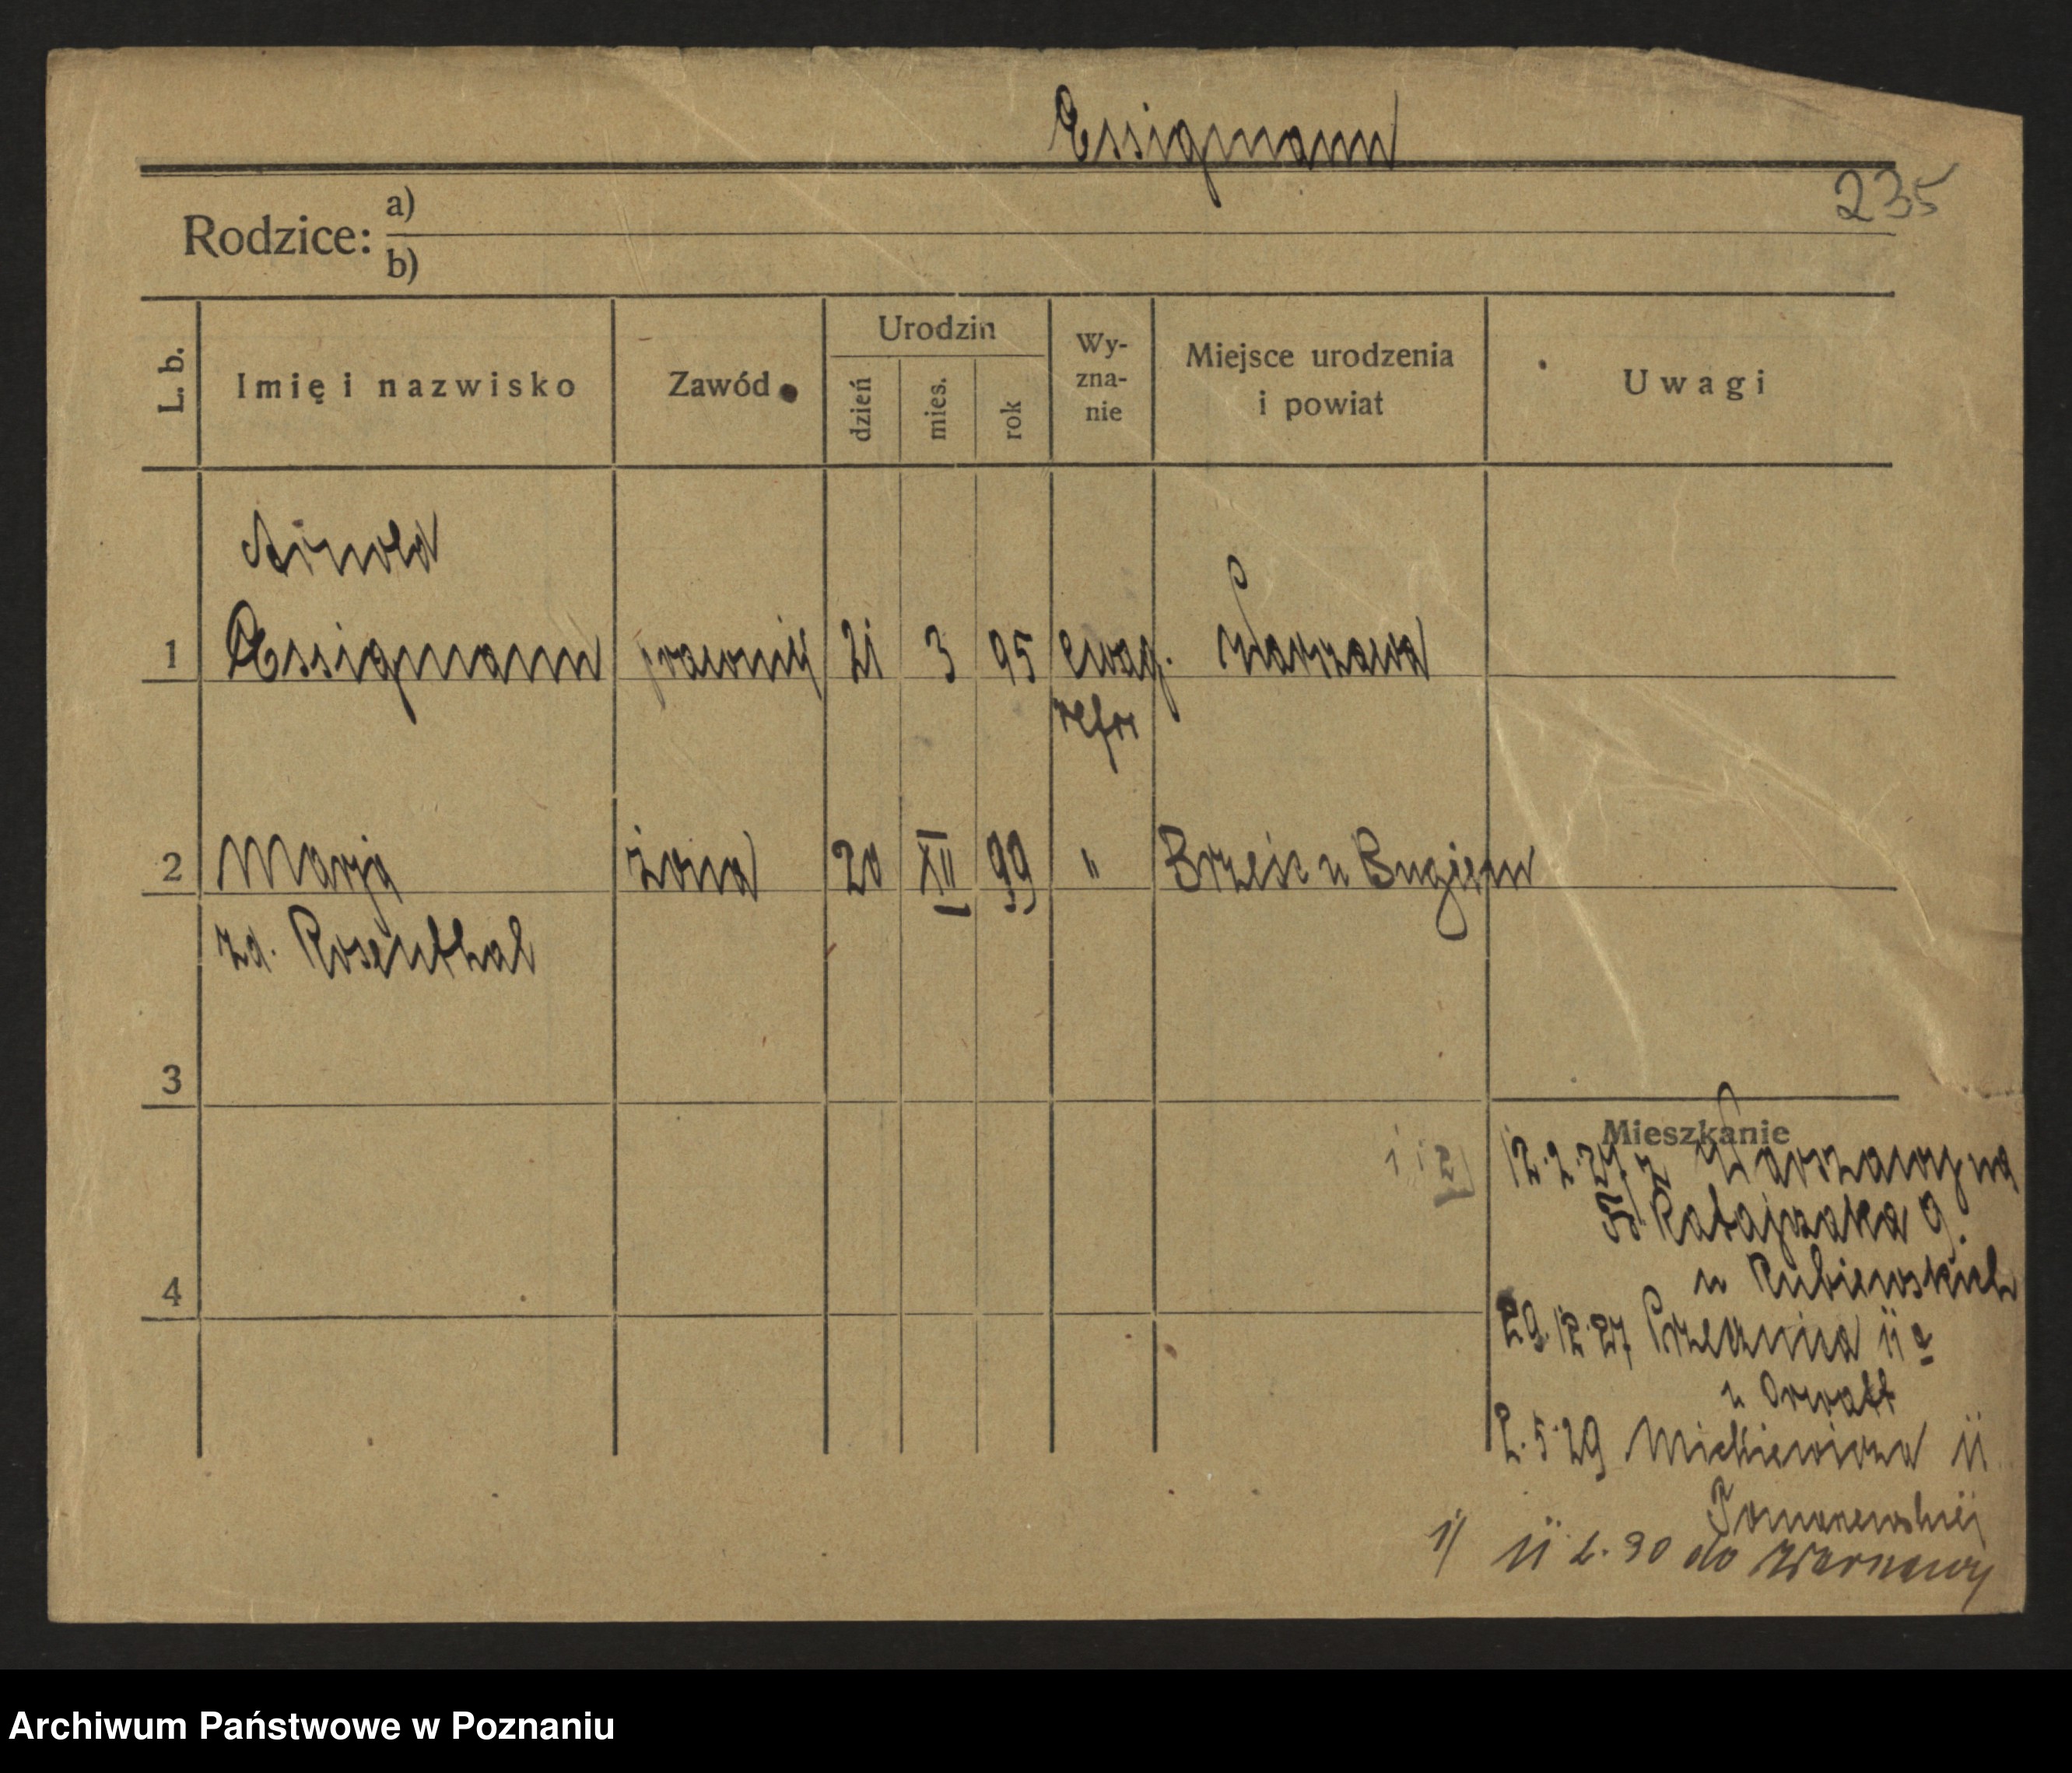 Essigmann
235
Rodzice: a)
b)
L. b.
Imię i nazwisko
Zawód
Urodzin
dzień
mies.
rok
Wy-
zna-
nie
Miejsce urodzenia
i powiat
Uwagi
Arnold
1 Essigmann prawnik 21 3 95 ewag. Warszawa
refr
2 Marja żona 20 XII 99 " Brześć n Bugiem
zd. Rosenthal
3
Mieszkanie
12.2.27 z Warszawy na
Ratajczaka 9.
u Rubiewskich
4
29.12.27 Przecznica 11a
u Orwatt
2.5.29 Mickiewicza 11
1/ 11 2.30 do Warszawy
Archiwum Państwowe w Poznaniu